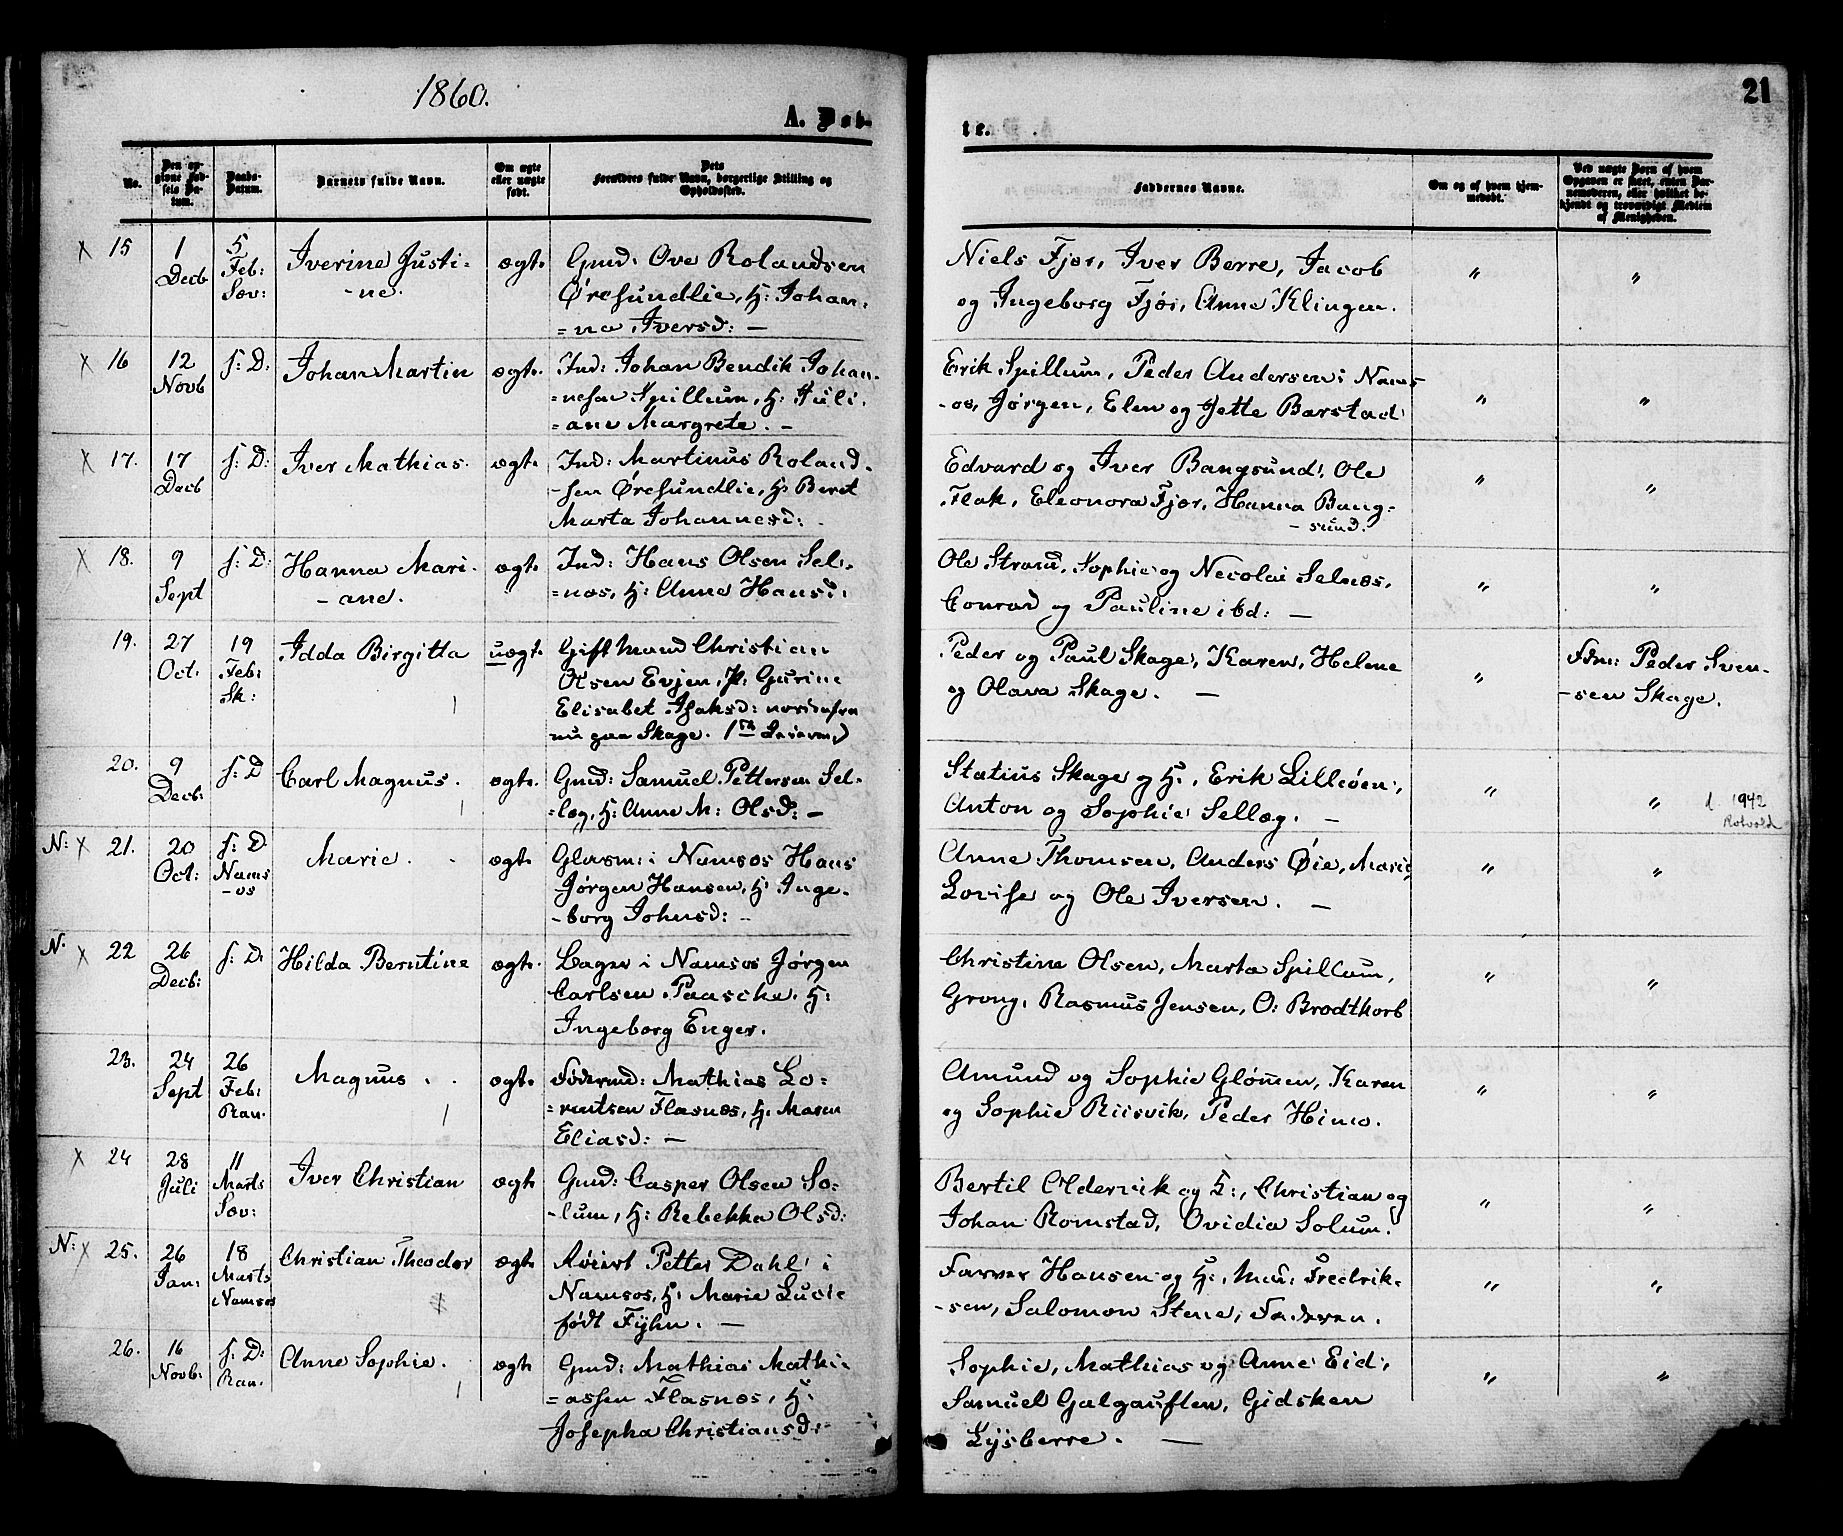 1860.
21
A. Døb-
te.
No.
Den op-
givne Fød-
sels Da-
tum.
Daabs-
Datum.
Barnets fulde Navn.
Om ægte
eller uægte
født.
Dets
Forældres fulde Navn, borgerlige Stilling og
Opholdssted.
Faddernes Navne.
Om og af hvem hjem-
medøbt.
Ved uægte Børn af hvem
Opgaven er skeet, enten Bar-
nemoderen, eller hvilket be-
kjendt og troværdigt Medlem
af Menigheden.
x 15
1
Decb
5
Feb:
Sæv:
Iverine Justi=
-ne.
ægte
Gmd: Ove Rolandsen
Øresundlie, H: Johan=
=na Iversd: —
Niels Fjær, Iver Berre, Jacob
og Ingeborg Fjær, Anne Klingen.
" "
x 16
12
Novb
s: D.
Johan Martin
ægte.
Ind: Johan Bendik Johan-
=nesen Spillum, H: Juli-
=ane Margrete. —
Erik Spillum, Peder Andersen i Nams-
-os, Jørgen, Elen og Jette Barstad
" "
x 17.
17
Decb
s: D:
Iver Mathias.
ægte
Ind: Martinus Roland-
-sen Øresundlie, H: Beret
Marta Johannesd:
Edvard og Iver Bangsund, Ole
Flak, Eleonora Fjær, Hanna Bang-
-sund.
" "
x 18.
9
Sept
s: D:
Hanna Mari-
-ane.
ægte
Ind: Hans Olsen Sel-
=næs, H: Anne Hansd:
Ole Strand, Sophie og Necolai Selnæs,
Conrad og Pauline ibd: —
" "
19.
27
Oct.
19
Feb:
Sk:
Idda Birgitta
uægte.
Gift Mand Christian
Olsen Evjen, P: Gurine
Elisabet Isaksd: nordenfra
nu paa Skage.
Peder og Paul Skage, Karen, Helene
og Olava Skage. —
"
Fdm: Peder Sven-
-sen Skage.
20.
9
Decb:
s: D
Carl Magnus.
ægte.
Gmd: Samuel Pettersen Sel-
=læg, H: Anne M: Olsd: —
Statius Skage og H:, Erik Lilleøen,
Anton og Sophie Sellæg. —
" "
1942
N: x 21.
20
Oct:
s: D
Nams
-os
Marie.
ægte
Glasm: i Namsos Hans
Jørgen Hansen, H: Inge-
-borg Johnsd: -
Anne Thomsen, Anders Øie, Marie
Lovise og Ole Iversen. —
" "
N. x 22
26
Decb:
s: D.
Hilda Berntine
ægte.
Bager i Namsos Jørgen
Carlsen Paasche, H:
Ingeborg Enger.
Christine Olsen, Marta Spillum,
Grong, Rasmus Jensen, O: Brodtkorb
" "
23.
24
Sept
26
Feb:
Ran.
Magnus.
ægte
Fødermd: Mathias Lo=
=rentsen Flasnæs, H: Maren
Eliasd: —
Amund og Sophie Glømmen, Karen
og Sophie Riisvik, Peder Himo.
" "
x 24
28
Juli
11
Marts
Sæv:
Iver Christian
ægte
Gmd: Casper Olsen So=
-lum, H: Rebekka Olsd:
Bertil Oldervik og H:, Christian og
Johan Romstad, Ovidia Solum.
" "
N: x 25.
26
Jan:
18
Marts
Namsos
Christian Theodor
ægte
Petter Dahl i
Namsos, H: Marie Lucie
født Fyhn. —
Farver Hansen og H:, Mad: Fredrik-
-sen, Salomon Stene, Faderen.
" "
26.
16
Novb:
s: D:
Ran.
Anne Sophie.
ægte
Gmd: Mathias Mathi-
=assen Flasnæs, H:
Josepha Christiansd:
Sophie, Mathias og Anne Eid,
Samuel Galguften, Gidsken
Lysberre. —
" "